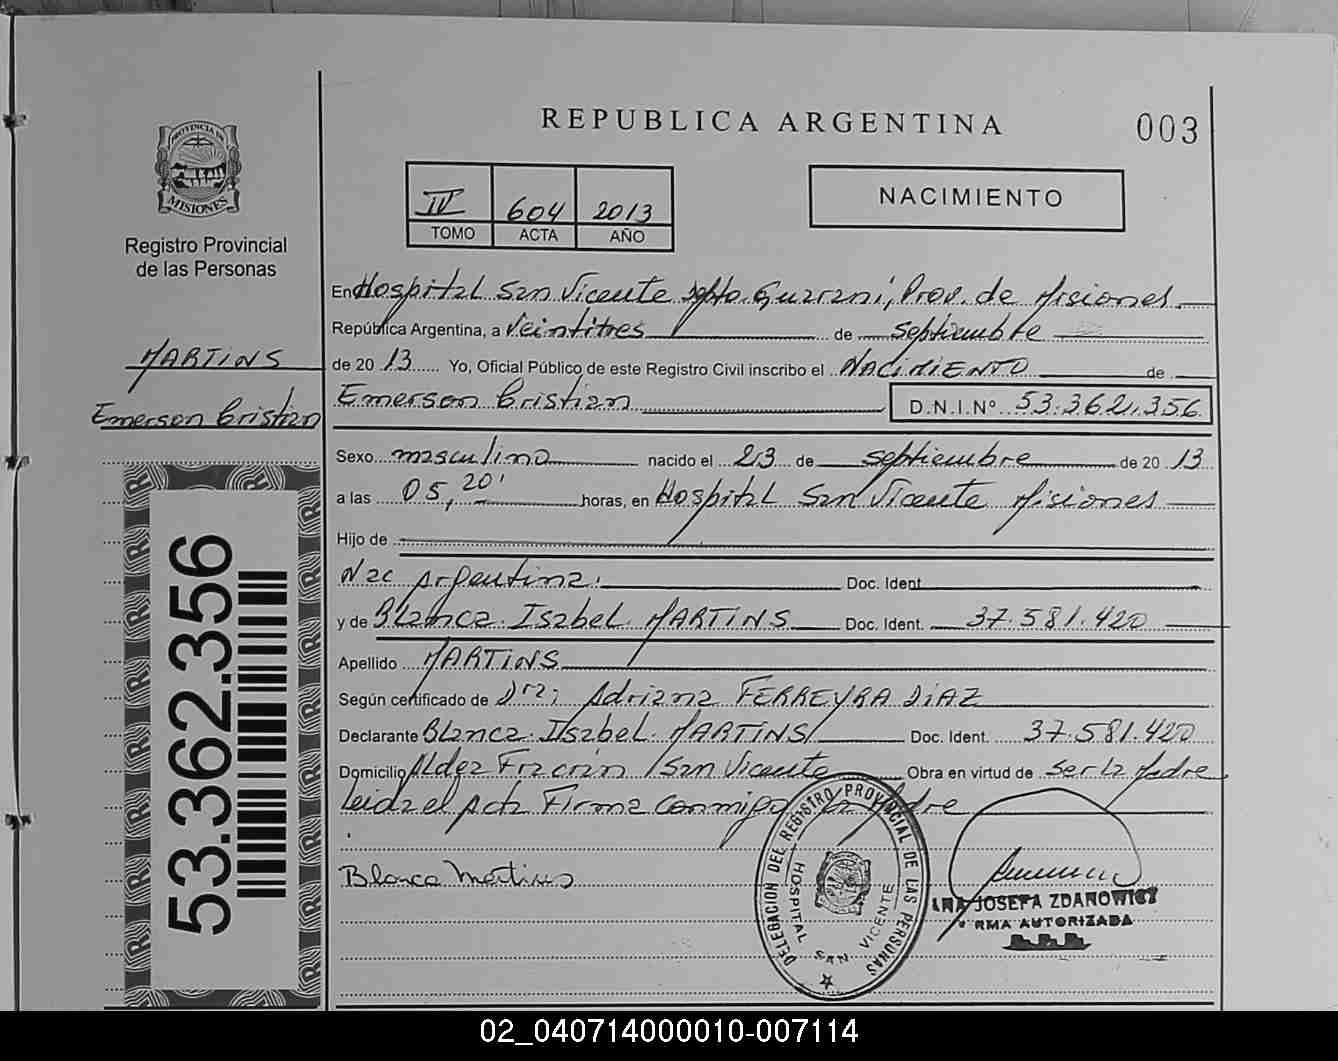 REPUBLICA ARGENTINA
003
PROVINCIA DE
MISIONES
Registro Provincial
de las Personas
IV 604 2013
TOMO ACTA AÑO
NACIMIENTO
En Hospital San Vicente Dpto. Guaraní, Prov. de Misiones
República Argentina, a Veintitres de septiembre
de 2013 Yo, Oficial Público de este Registro Civil inscribo el NACIMIENTO de
Emerson Cristian D.N.I.Nº 53.362.356
MARTINS
Emerson Cristian
Sexo masculino nacido el 23 de septiembre de 2013
a las 05,20' horas, en Hospital San Vicente Misiones
Hijo de
Nac Argentina. Doc. Ident.
y de Blanca Isabel MARTINS Doc. Ident. 37.581.420
Apellido MARTINS
Según certificado de Dra; Adriana FERREYRA DIAZ
Declarante Blanca Isabel MARTINS Doc. Ident. 37.581.420
Domicilio Aldea Fracrán San Vicente Obra en virtud de ser la Madre
leida el Acta Firma conmigo la Madre
Blanca Martins
53.362.356
DELEGACION DEL REGISTRO PROVINCIAL DE LAS PERSONAS
HOSPITAL SAN VICENTE
JOSEFA ZDANOWICZ
RMA AUTORIZADA
02_040714000010-007114